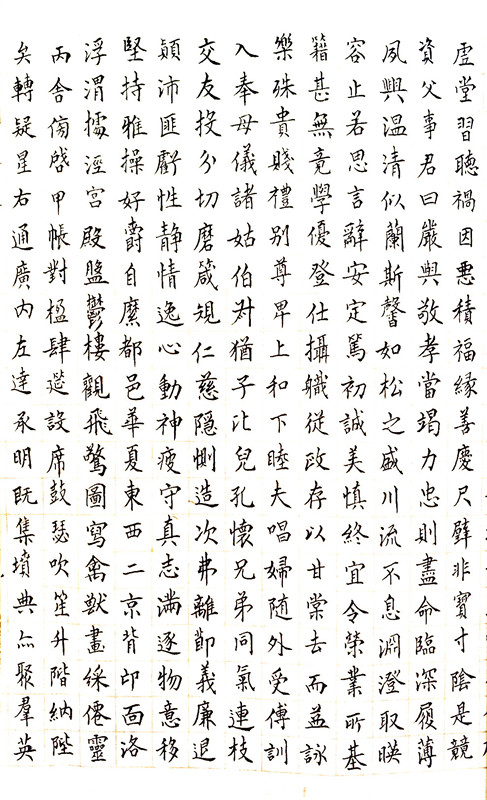 虛堂習聽禍因惡積福緣善慶尺璧非寶寸陰是競
資父事君曰嚴與敬孝當竭力忠則盡命臨深履薄
夙興温清似蘭斯馨如松之盛川流不息淵澄取暎
容止若思言辭安定篤初誠美慎終宜令榮業所基
籍甚無竟學優登仕攝職從政存以甘棠去而益詠
樂殊貴賤禮別尊卑上和下睦夫唱婦随外受傅訓
入奉母儀諸姑伯叔猶子比兒孔懷兄弟同氣連枝
交友投分切磨箴規仁慈隱惻造次弗離節義廉退
顛沛匪虧性静情逸心動神疲守真志滿逐物意移
堅持雅操好爵自縻都邑華夏東西二京背邙面洛
浮渭據涇宫殿盤鬱樓觀飛驚圖寫禽獸畫綵僊靈
丙舍傍啓甲帳對楹肆筵設席鼓瑟吹笙升階納陛
弁轉疑星右通廣内左達承明既集墳典亦聚羣英